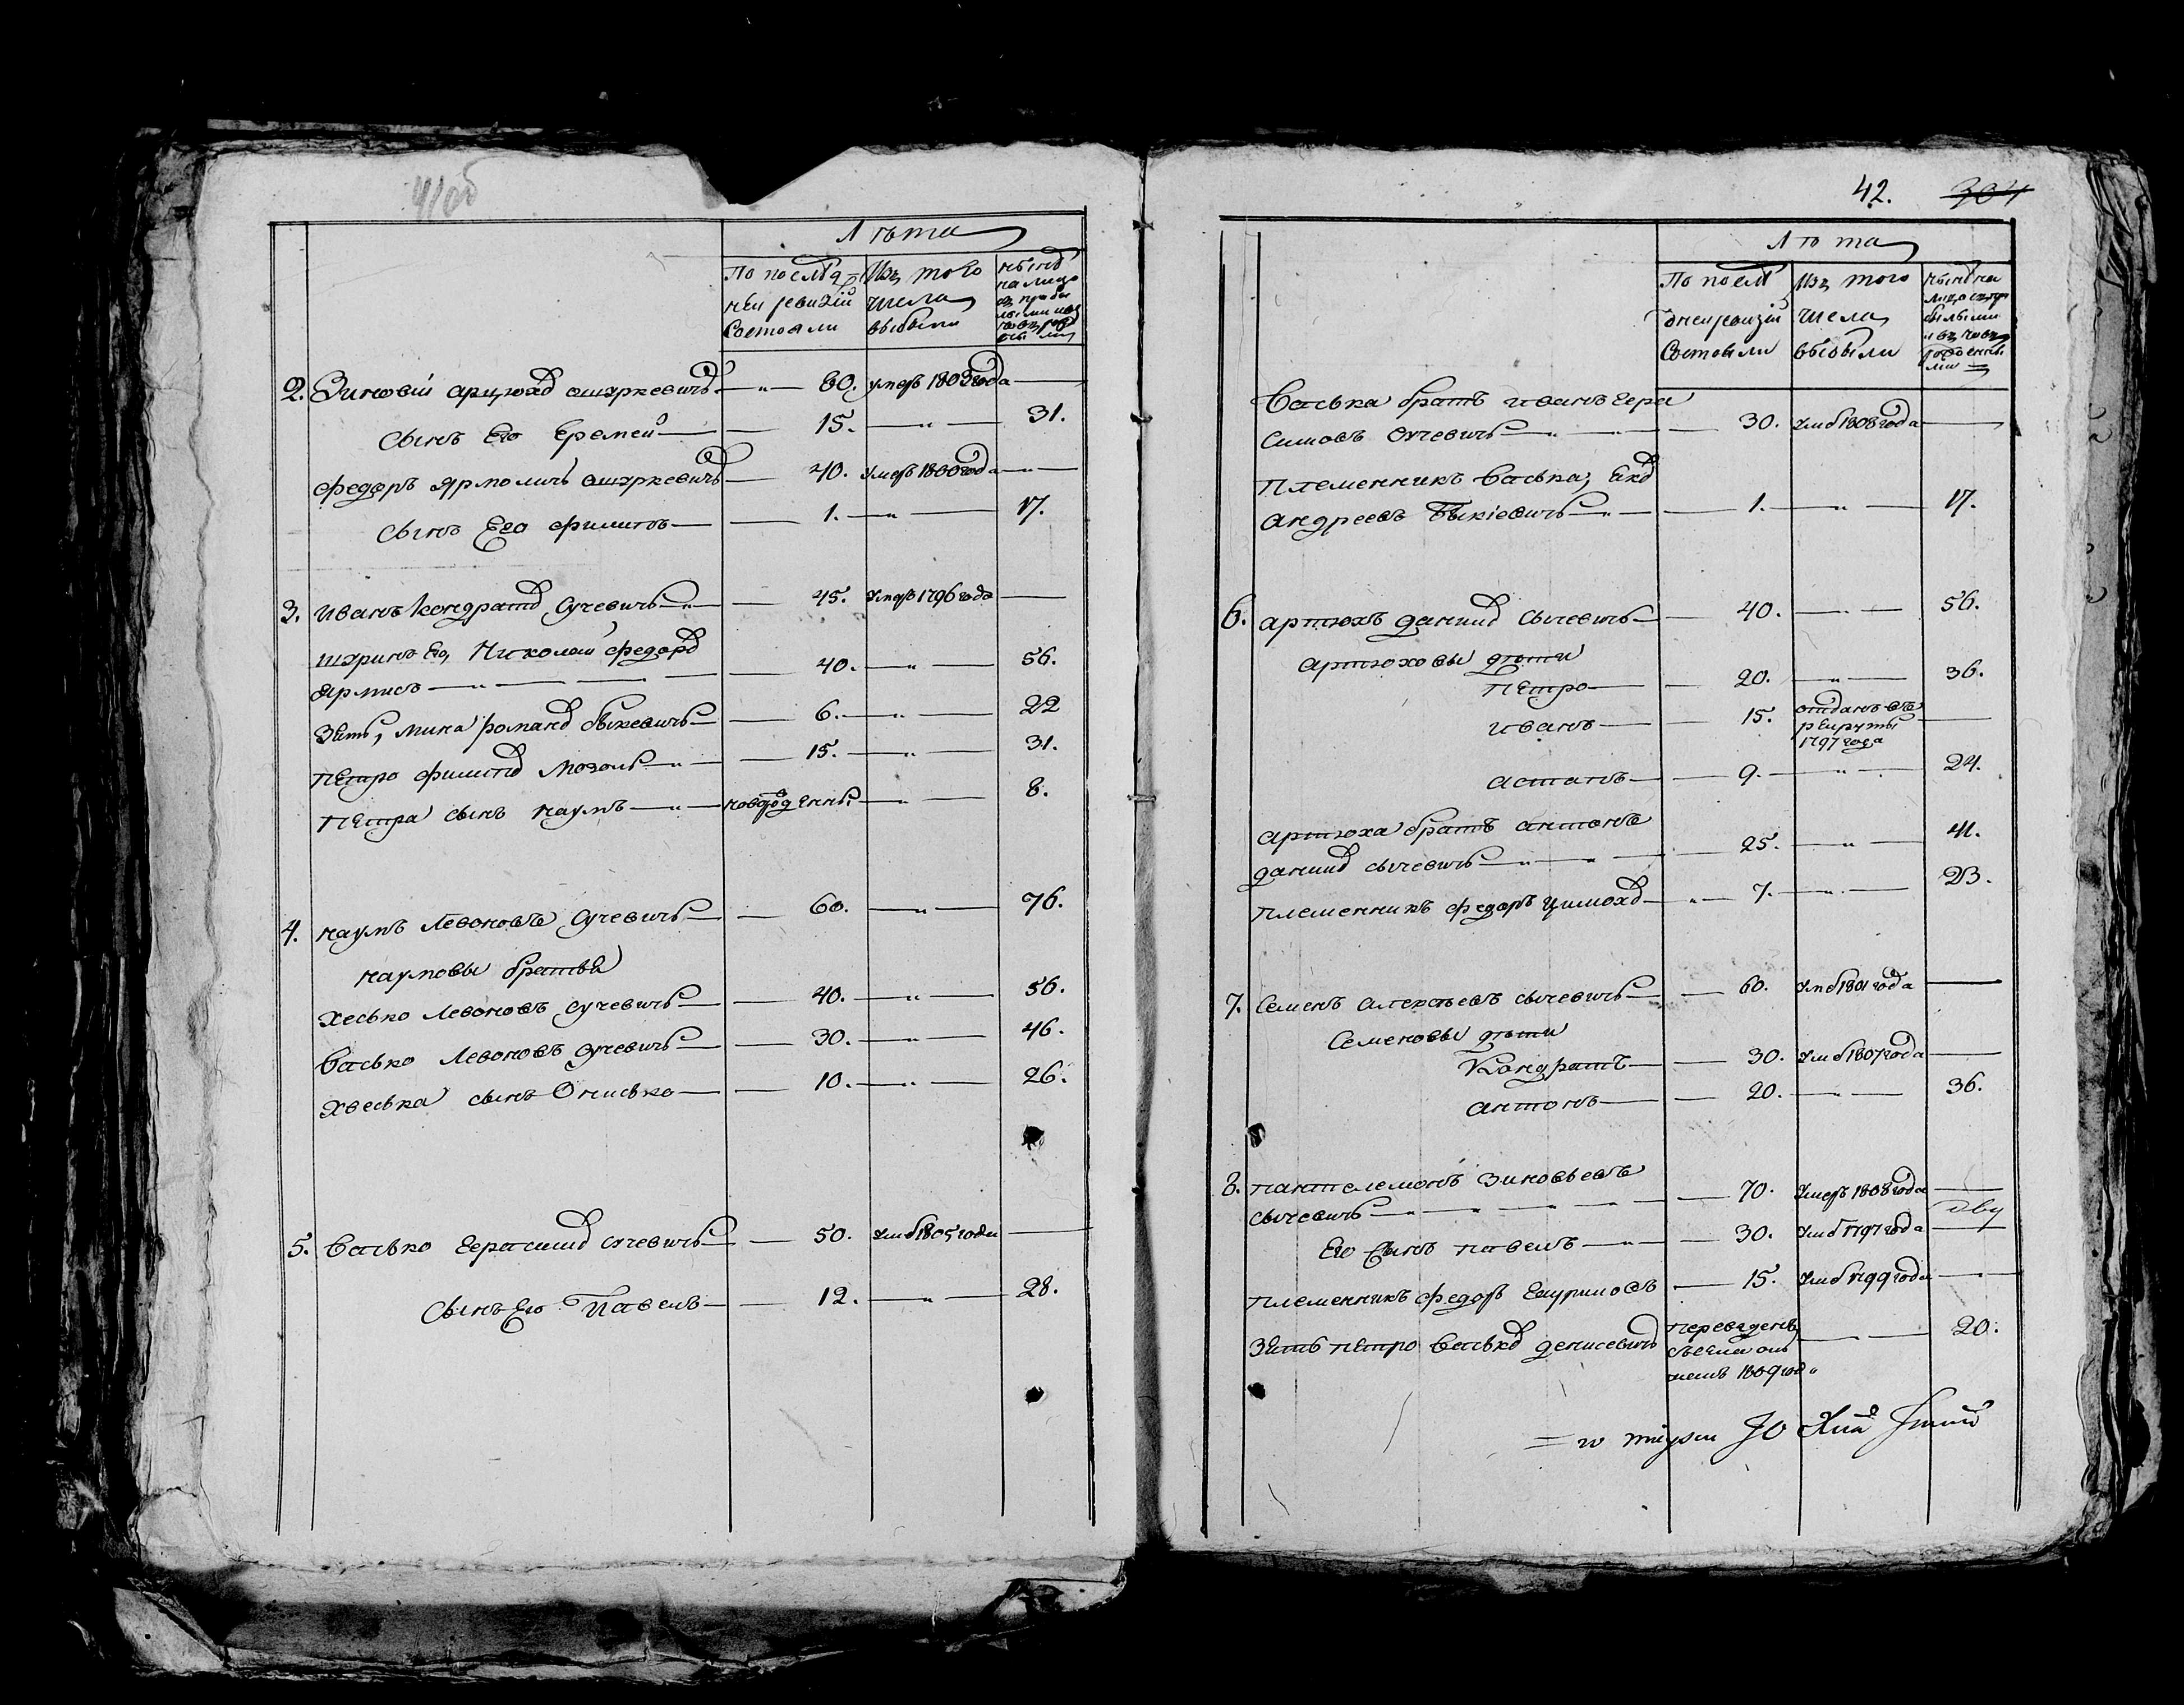 41об
Лѣта
По послѣд Изъ того нынѣ
ней ревизіи числа на лицо
состояли выбыли
2. Зиновій Арцюхов Ошуркевичъ — 60. умеръ 1803 года —
Сынъ Его Еремей — 15. — 31.
Федоръ Ярмоличъ Ошуркевичъ — 40. Умеръ 1800 года —
Сынъ Его Филипъ — 1. — 17.
3. Иванъ Кондратов Сучевичъ — 45. Умеръ 1796 года —
Шуринъ Его, Николай Федоров
Ярмисъ — 40. — 56.
Зять, Мина Романов Быкевичъ — 6. — 22
Петро Филипов Мозоль — 15. — 31.
Петра сынъ Наумъ — новорожденны — 8.
4. Наумъ Левоновъ Сучевичъ — 60. — 76.
Наумовы братья
Хесько Левоновъ Сучевичъ — 40. — 56.
Васько Левоновъ Сучевичъ — 30. — 46.
Хвеська сынъ Ониська — 10. — 26.
5. Васько Герасимов Сучевичъ — 50. Умеръ 1805 года —
Сынъ Его Павелъ — 12. — 28.
42. 304
Лѣта
По послѣ Изъ того нынѣ на
дней ревизіи числа лицо съ при
состояли выбыли былыми
и въ новъ
рожденны
ми
Васька братъ Иванъ Гера
симовъ Сучевичъ — 30. Умеръ 1808 года —
Племенникъ Васька, Екв
Андреевъ Быкіевичъ — 1. — 17.
6. Артюхъ Данилов Сычевичъ — 40. — 56.
Артюховы дѣти
Петро — 20. — 36.
Иванъ — 15. отданъ въ
рекруты
1797 года
Астапъ — 9. — 24.
Артюха братъ Антонъ
Данилов Сычевичъ — 25. — 41.
Племенникъ Федоръ Цимохов — 7. — 23.
7. Семенъ Алексѣевъ Сычевичъ — 60. Умеръ 1801 года —
Семеновы дѣти
Кондратъ — 30. Умеръ 1807 года —
Антонъ — 20. — 36.
8. Пантелемонъ Зиновьевъ
Сычевичъ — 70. Умеръ 1808 года —
Его Сынъ Павелъ — 30. Умеръ 1797 года —
Племенникъ Федоръ — 15. Умеръ 1799 года —
Зять Петро Васьков Денисевичъ переведенъ — 20.
1809 года